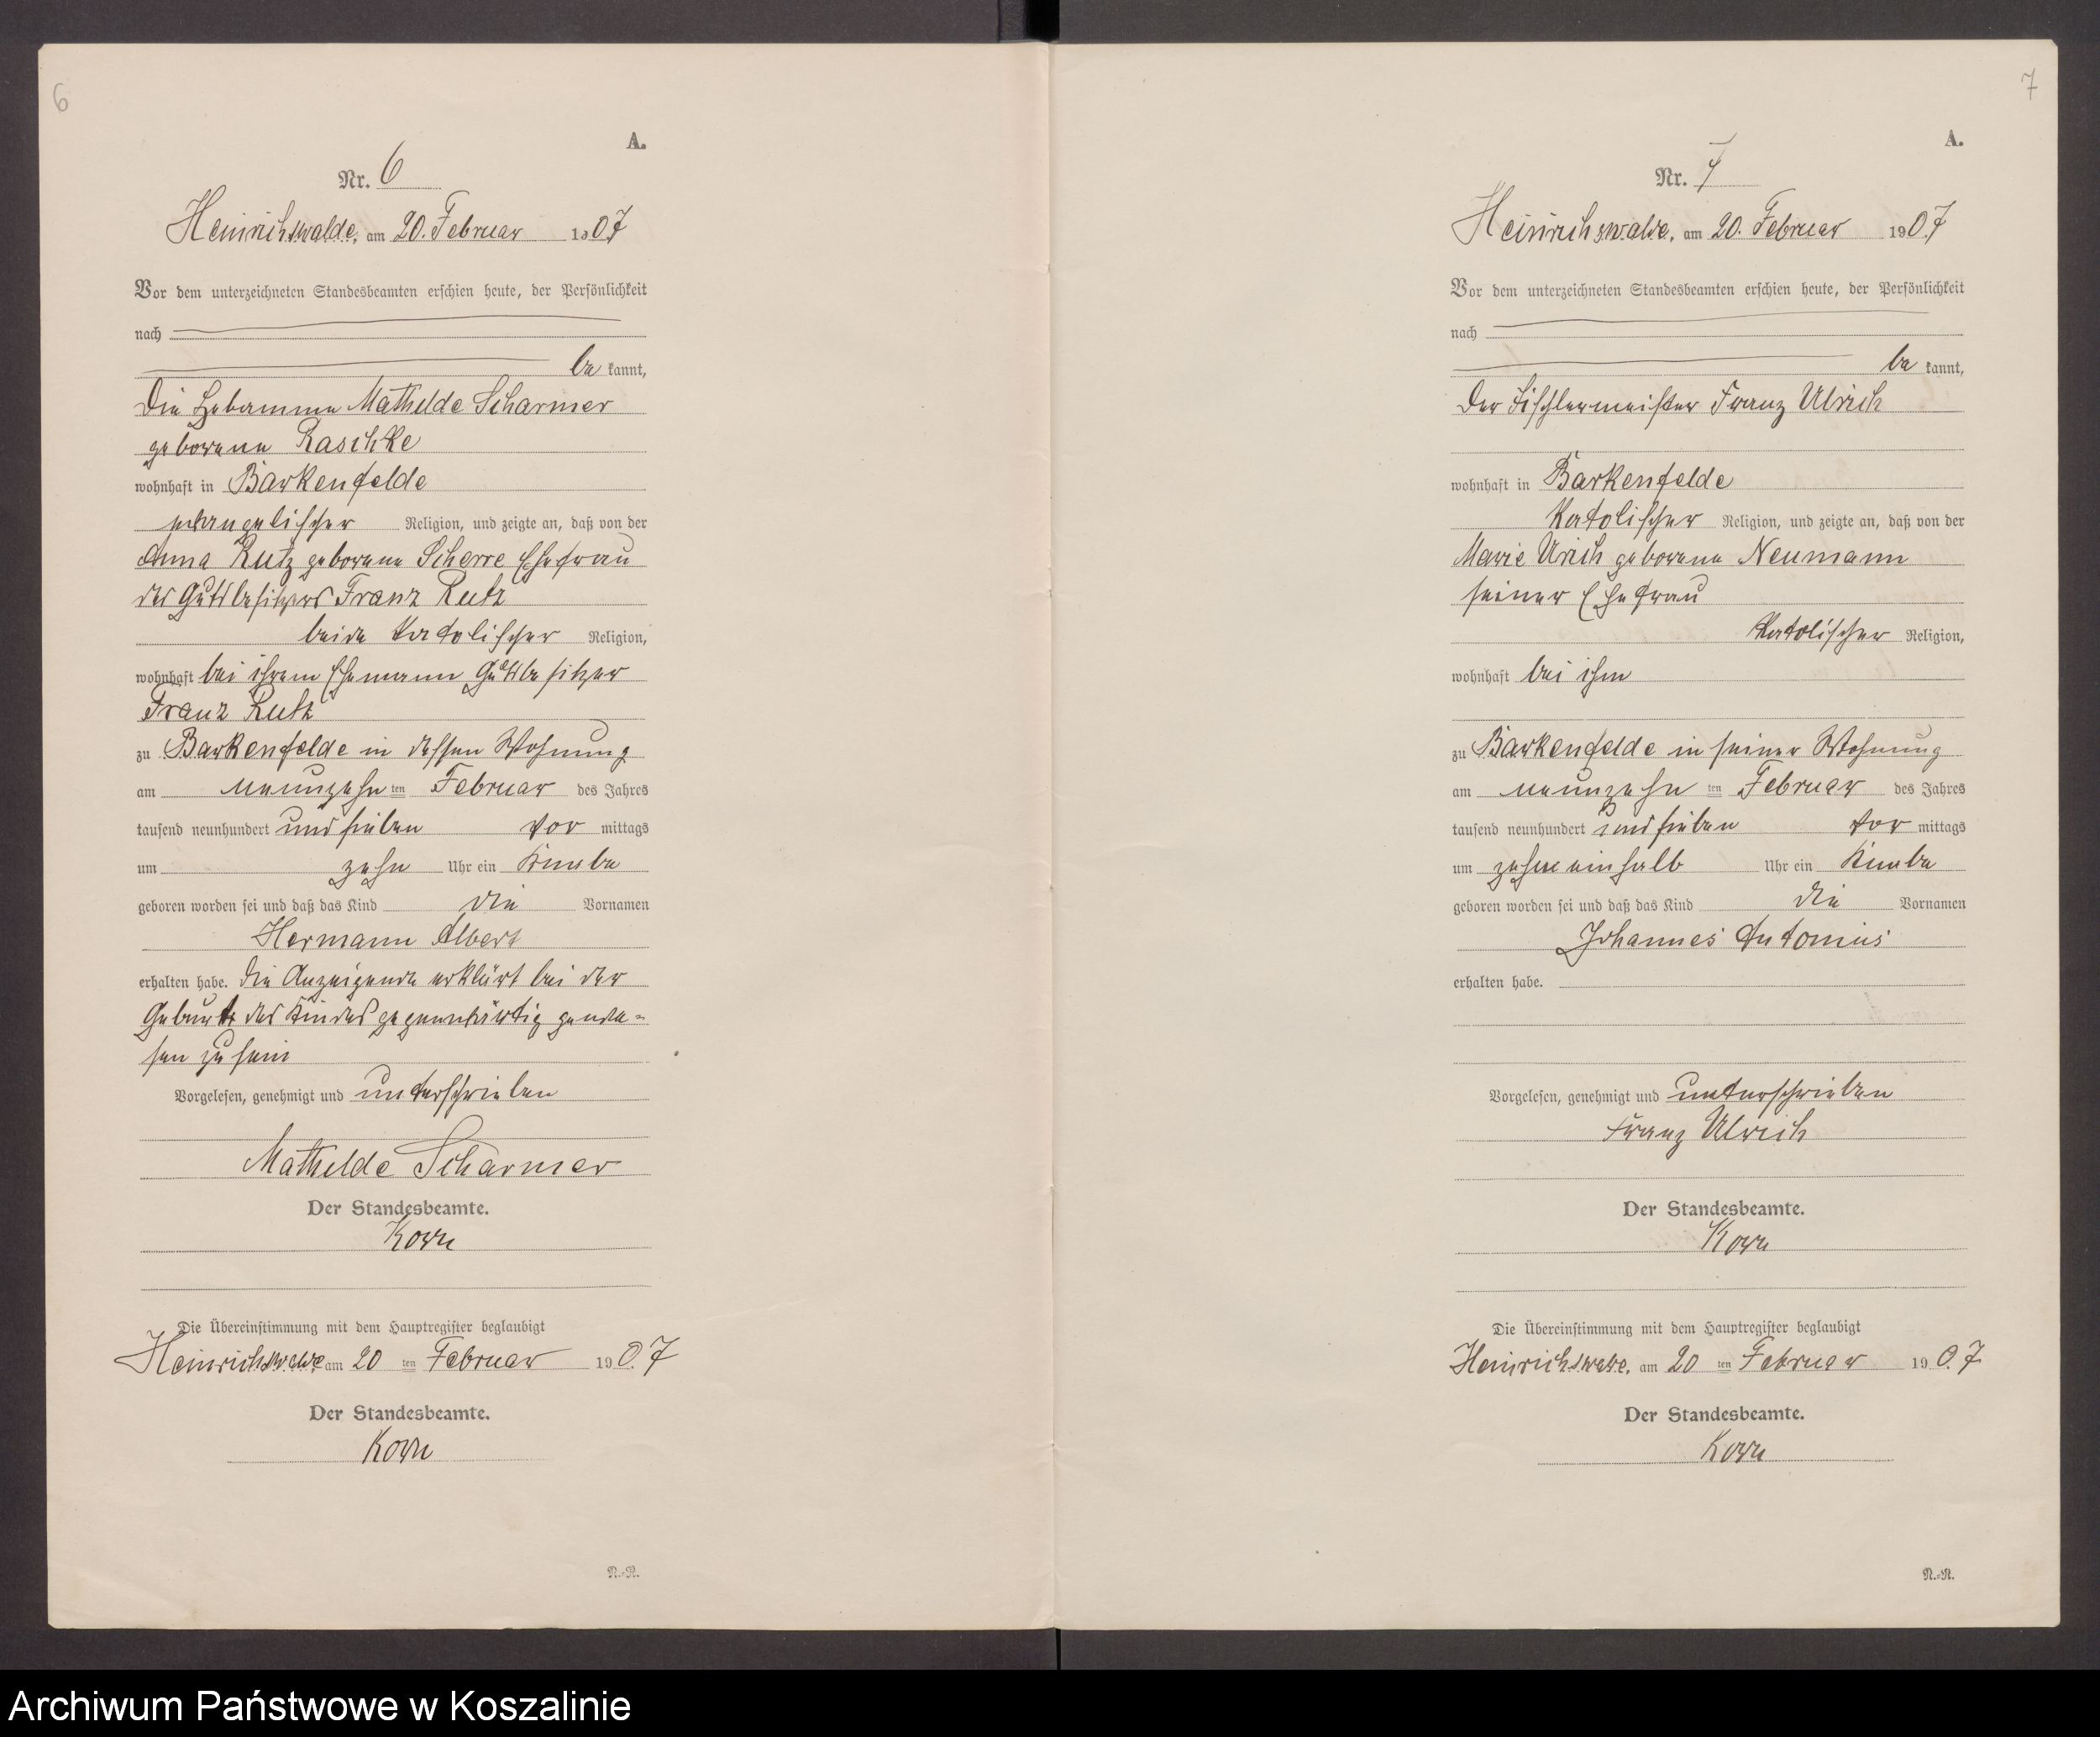 6
A.
Nr. 6
Heinrichswalde, am 20. Februar 1907
Vor dem unterzeichneten Standesbeamten erschien heute, der Persönlichkeit
nach
be kannt,
Die Hebamme Mathilde Scharmer
geborene Raschke
wohnhaft in Barkenfelde
evangelischer Religion, und zeigte an, daß von der
Anna Rutz geborene Scherre Ehefrau
des Gutsbesitzers Franz Rutz
beide katolischer Religion,
wohnhaft bei ihrem Ehemann Gutsbesitzer
Franz Rutz
zu Barkenfelde in dessen Wohnung
am neunzehn ten Februar des Jahres
tausend neunhundert und sieben Vor mittags
um zehn Uhr ein Knabe
geboren worden sei und daß das Kind die Vornamen
Hermann Albert
erhalten habe. Die Anzeigende erklärt bei der
Geburt des Kindes gegenwärtig gewe-
sen zu sein
Vorgelesen, genehmigt und unterschrieben
Mathilde Scharmer
Der Standesbeamte.
Korn
Die Übereinstimmung mit dem Hauptregister beglaubigt
Heinrichswalde am 20 ten Februar 1907
Der Standesbeamte.
Korn
N.=R.
7
A.
Nr. 7
Heinrichswalde, am 20. Februar 1907
Vor dem unterzeichneten Standesbeamten erschien heute, der Persönlichkeit
nach
be kannt,
Der Tischlermeister Franz Ulrich
wohnhaft in Barkenfelde
katolischer Religion, und zeigte an, daß von der
Marie Urich geborene Neumann
seiner Ehefrau
katolischer Religion,
wohnhaft bei ihm
zu Barkenfelde in seiner Wohnung
am neunzehn ten Februar des Jahres
tausend neunhundert und sieben vor mittags
um zehneinhalb Uhr ein Knabe
geboren worden sei und daß das Kind die Vornamen
Johannes Antonius
erhalten habe.
Vorgelesen, genehmigt und unterschrieben
Franz Ulrich
Der Standesbeamte.
Korn
Die Übereinstimmung mit dem Hauptregister beglaubigt
Heinrichswalde, am 20 ten Februar 1907
Der Standesbeamte.
Korn
N.=R.
Archiwum Państwowe w Koszalinie